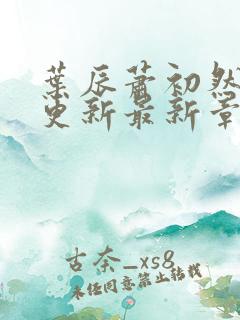 葉辰蕭初然
更新最新章
古奈_xs8
未经同意禁止转载